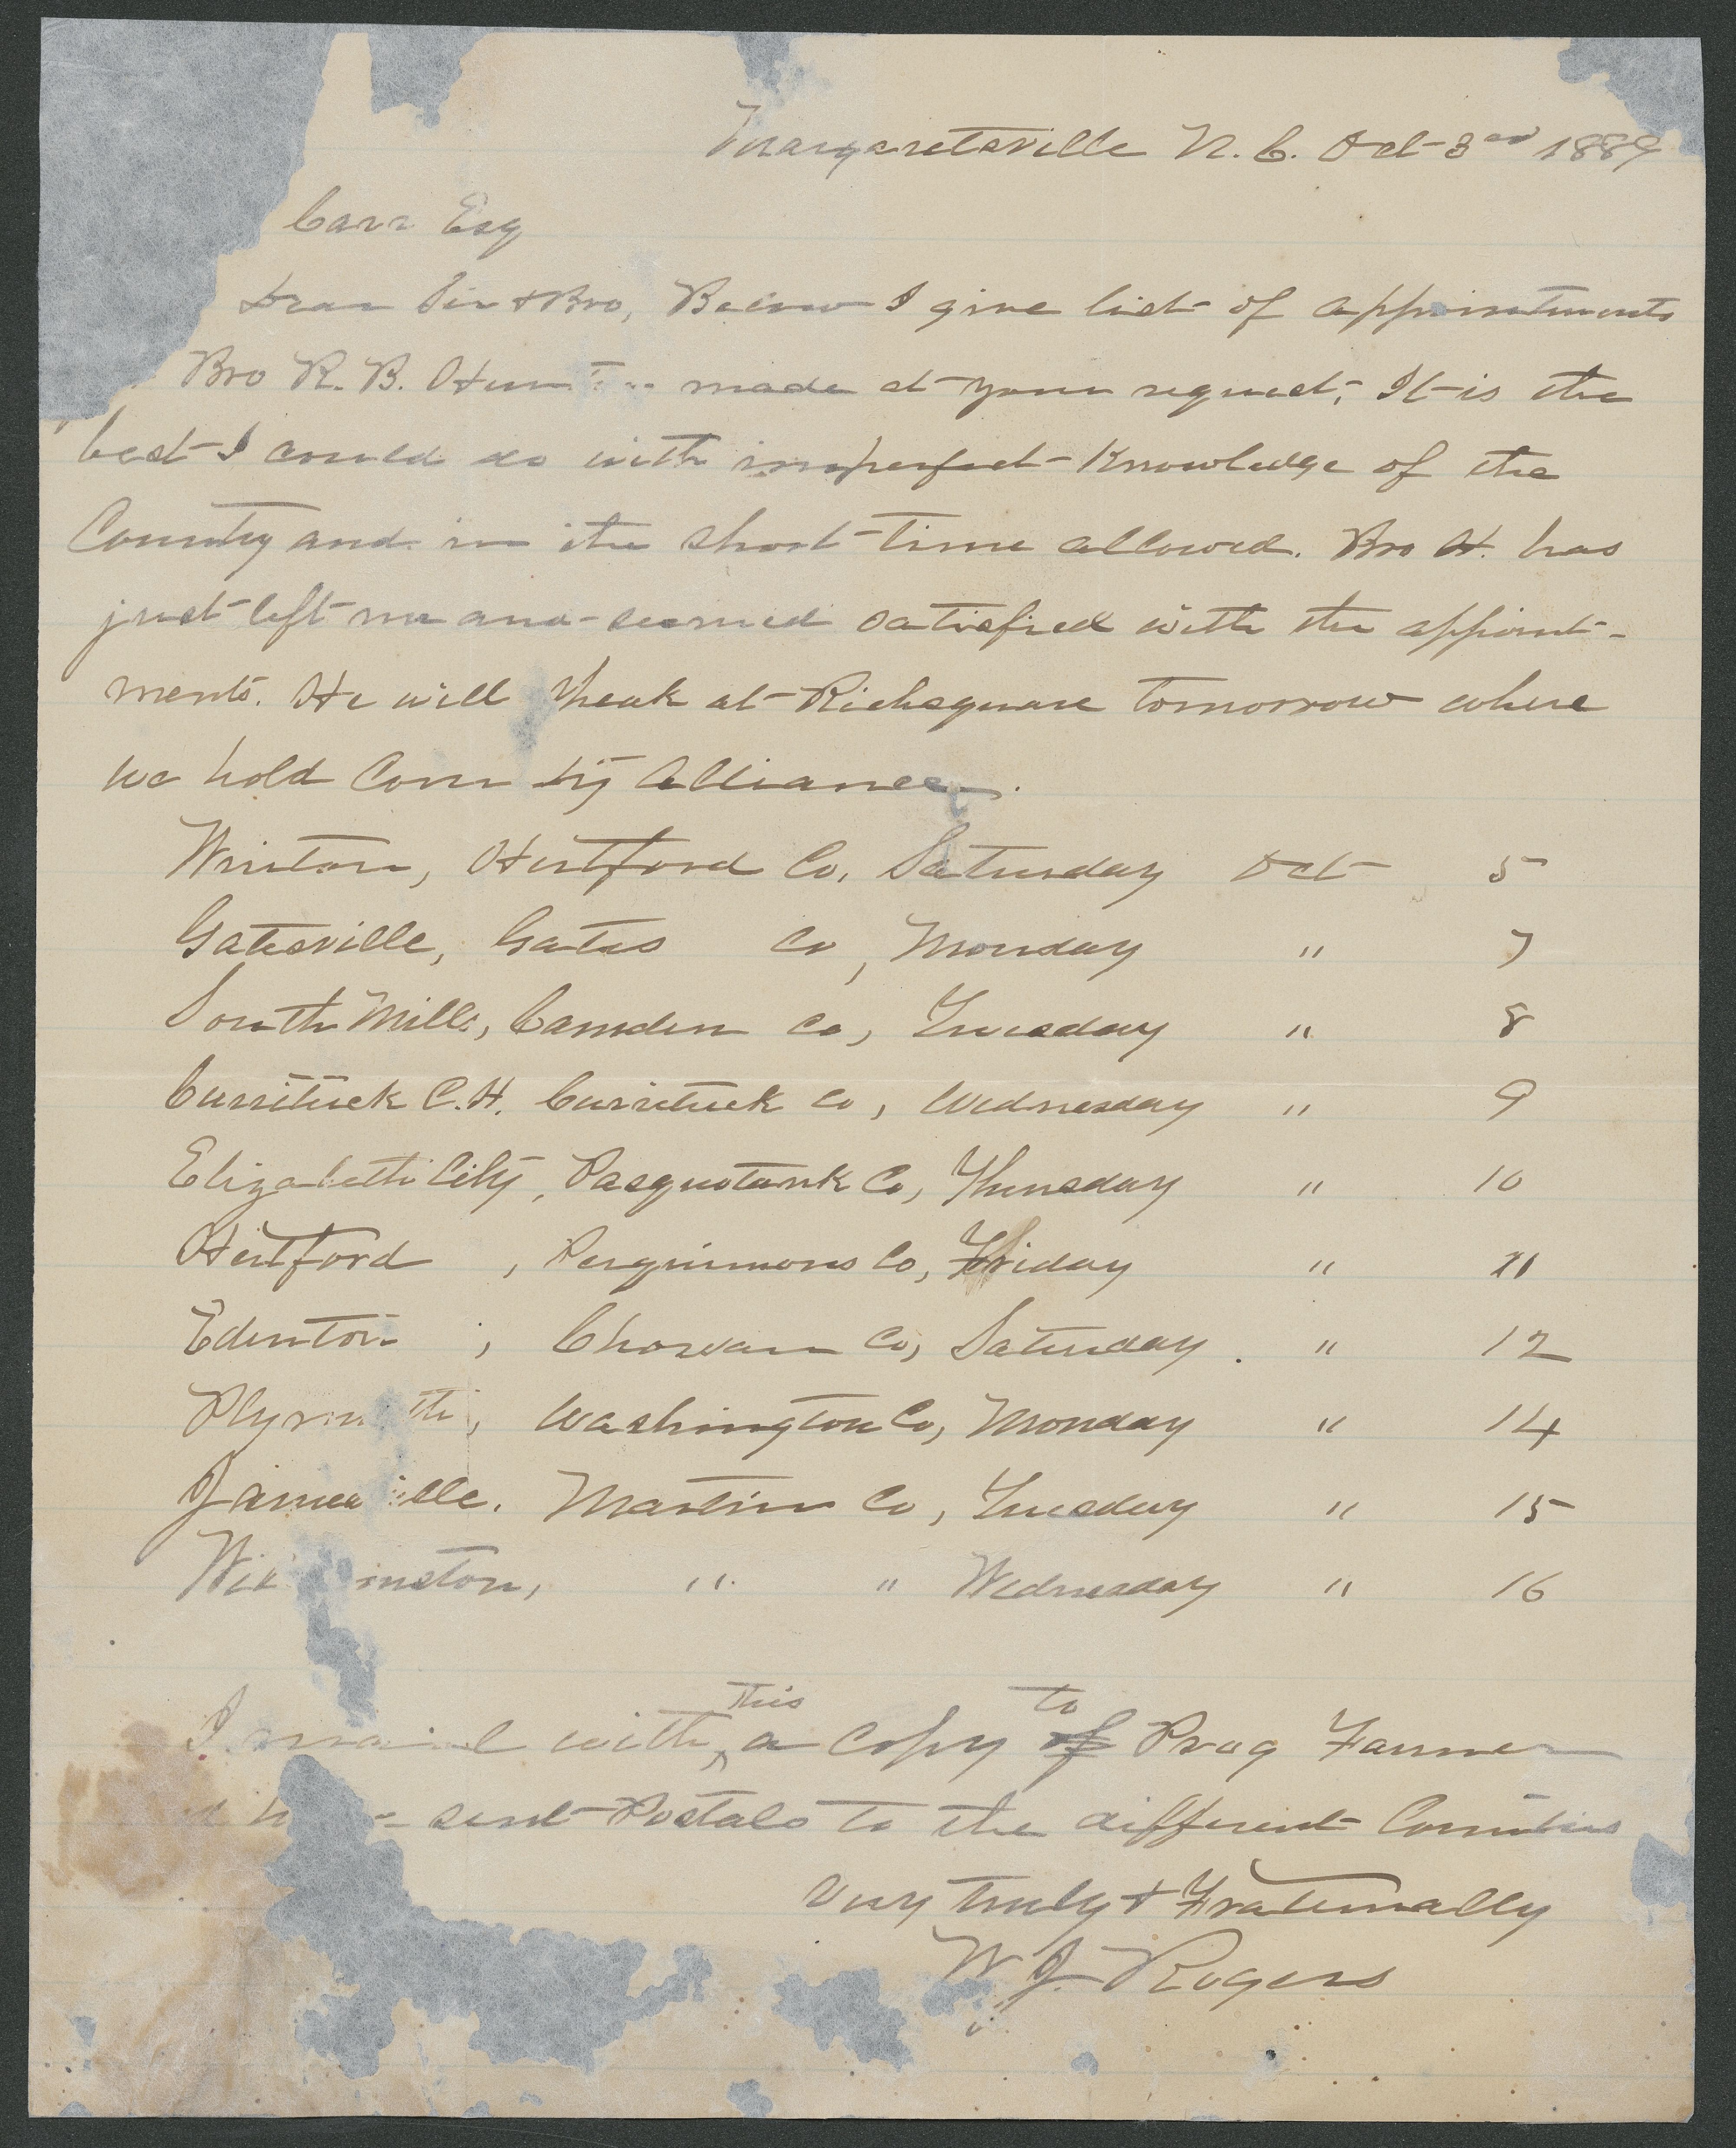 Margaretsville N. C. Oct 3rd 1889
Carr Esq
Dear Sir & Bro, Below I give list of appointments
Bro R. B. made at your request, It is the
best I could do with imperfect Knowledge of the
Country and in the short time allowed. Bro H. has
just left me and seemed satisfied with the appoint-
ments. He will speak at Richsquare tomorrow where
we hold County Alliance.
Winton, Hertford Co, Saturday Oct 5
Gatesville, Gates Co, Monday " 7
South Mills, Camden Co, Tuesday " 8
Currituck C.H. Currituck Co, Wednesday " 9
Elizabeth City, Pasquotank Co, Thursday " 10
Hertford, Perquimons Co, Friday " 11
Edenton, Chowan Co, Saturday. " 12
Plymouth, Washington Co, Monday " 14
Jamesville. Martin Co, Tuesday " 15
" " Wednesday " 16
I mail with this a copy of to Prog Farmer
sent Postals to the different Counties
Very truly & Fraternally
W J. Rogers